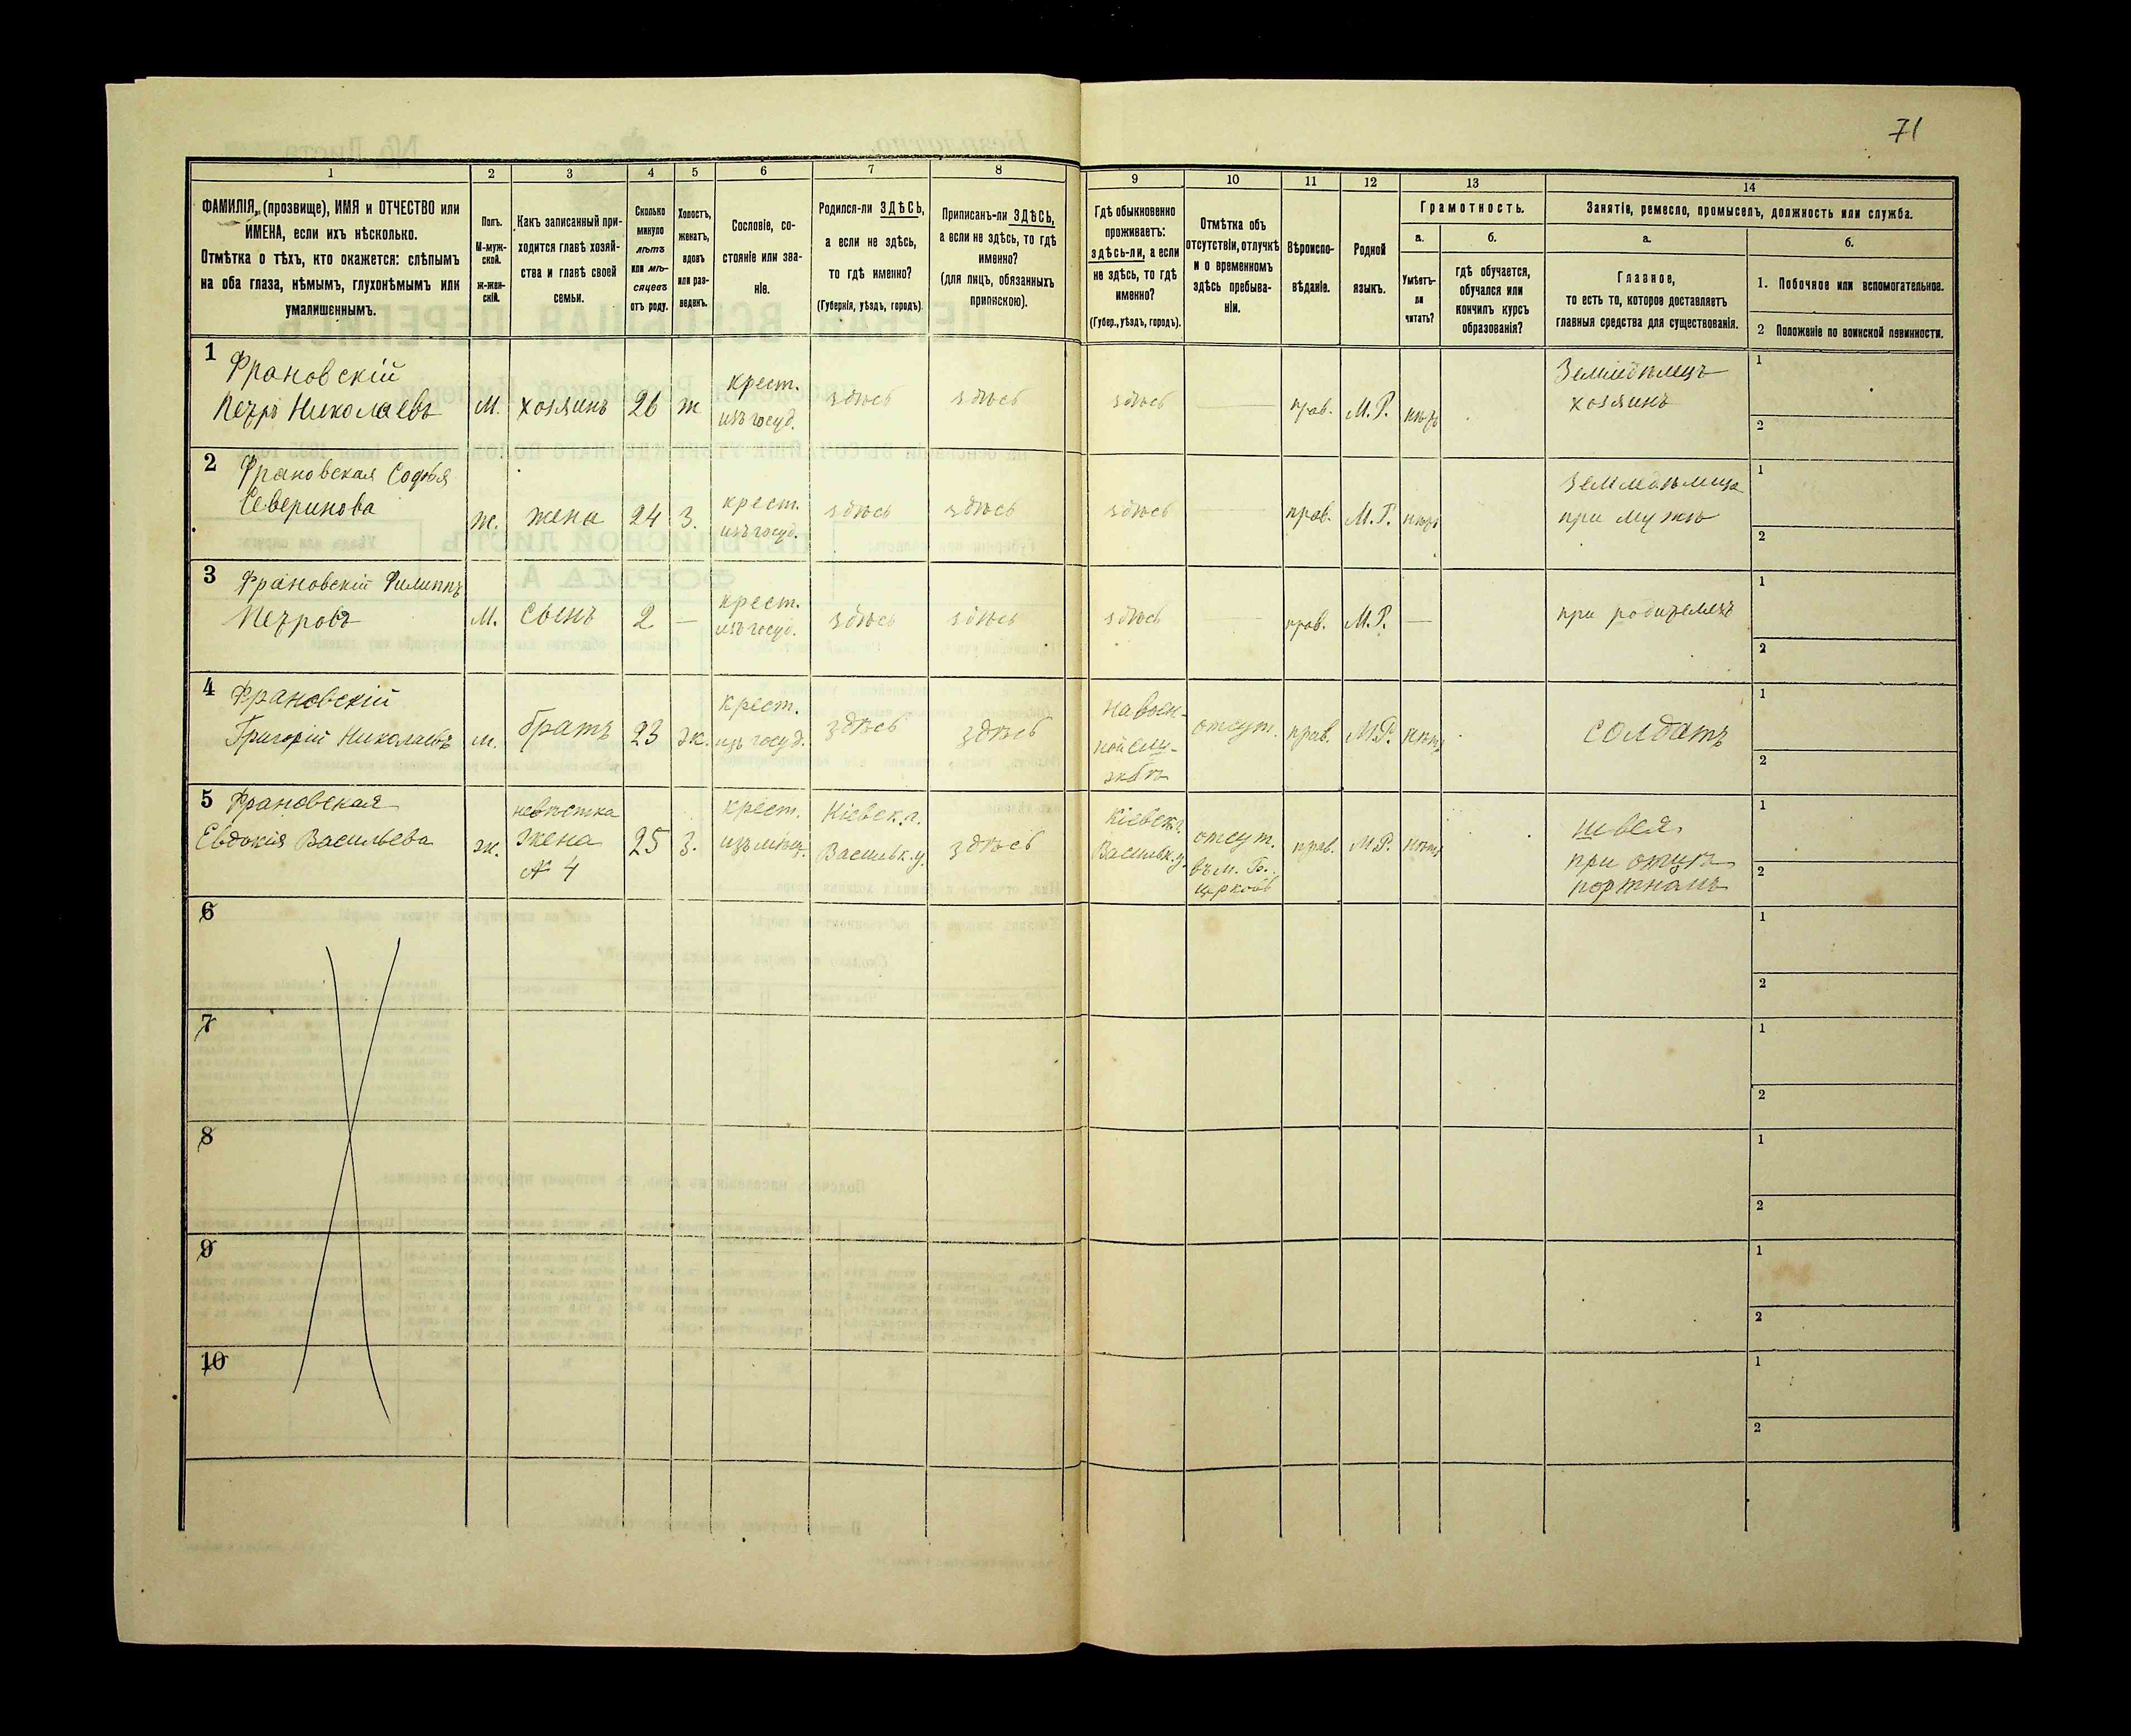 71
1 2 3 4 5 6 7 8 9 10 11 12 13 14
ФАМИЛІЯ, (прозвище), ИМЯ и ОТЧЕСТВО или
ИМЕНА, если ихъ нѣсколько.
Отмѣтка о тѣхъ, кто окажется: слѣпымъ
на оба глаза, нѣмымъ, глухонѣмымъ или
умалишеннымъ.
Полъ.
М-муж-
ской.
ж-жен-
скій.
Какъ записанный при-
ходится главѣ хозяй-
ства и главѣ своей
семьи.
Сколько
минуло
лѣтъ
или мѣ-
сяцевъ
отъ роду.
Холостъ,
женатъ,
вдовъ
или раз-
веденъ.
Сословіе, со-
стояніе или зва-
ніе.
Родился-ли ЗДѢСЬ,
а если не здѣсь,
то гдѣ именно?
(Губернія, уѣздъ, городъ).
Приписанъ-ли ЗДѢСЬ,
а если не здѣсь, то гдѣ
именно?
(для лицъ, обязанныхъ
припискою).
Гдѣ обыкновенно
проживаетъ:
здѣсь-ли, а если
не здѣсь, то гдѣ
именно?
(Губер., уѣздъ, городъ).
Отмѣтка объ
отсутствіи, отлучкѣ
и о временномъ
здѣсь пребыва-
ніи.
Вѣроиспо-
вѣданіе.
Родной
языкъ.
Грамотность.
а.
Умѣетъ-
ли
читать?
б.
гдѣ обучается,
обучался или
кончилъ курсъ
образованія?
Занятіе, ремесло, промыселъ, должность или служба.
а.
Главное,
то есть то, которое доставляетъ
главныя средства для существованія.
б.
1. Побочное или вспомогательное.
2 Положеніе по воинской повинности.
1 Франовскій
Петръ Николаевъ М. хозяинъ 26 ж
крест.
изъ госуд.
здѣсь здѣсь здѣсь прав. М.Р. нѣтъ
Земледѣлецъ
хозяинъ
1
2
2 Франовская Софья
Северинова
ж. жена 24 з.
крест.
изъ госуд.
здѣсь здѣсь здѣсь прав. М.Р. нѣтъ
земледѣлица
при мужѣ
1
2
3 Франовскій Филиппъ
Петровъ
М. сынъ 2 —
крест.
изъ госуд.
здѣсь здѣсь здѣсь прав. М.Р. —
при родителяхъ
1
2
4 Франовскій
Григорій Николаевъ м. братъ 23 ж.
крест.
изъ госуд.
здѣсь здѣсь
на воен-
ной слу-
жбѣ
отсут. прав. М.Р. нѣтъ
солдатъ
1
2
5 Франовская
Евдокія Васильева ж.
невѣстка
жена
№ 4
25 з.
крест.
изъ мѣщ.
Кіевск. г.
Васильк. у.
здѣсь
Кіевск. г.
Васильк. у.
отсут.
въ м. Б.
церковь
прав. М.Р. нѣтъ
швея
при отцѣ
портномъ
1
2
6
1
2
7
1
2
8
1
2
9
1
2
10
1
2